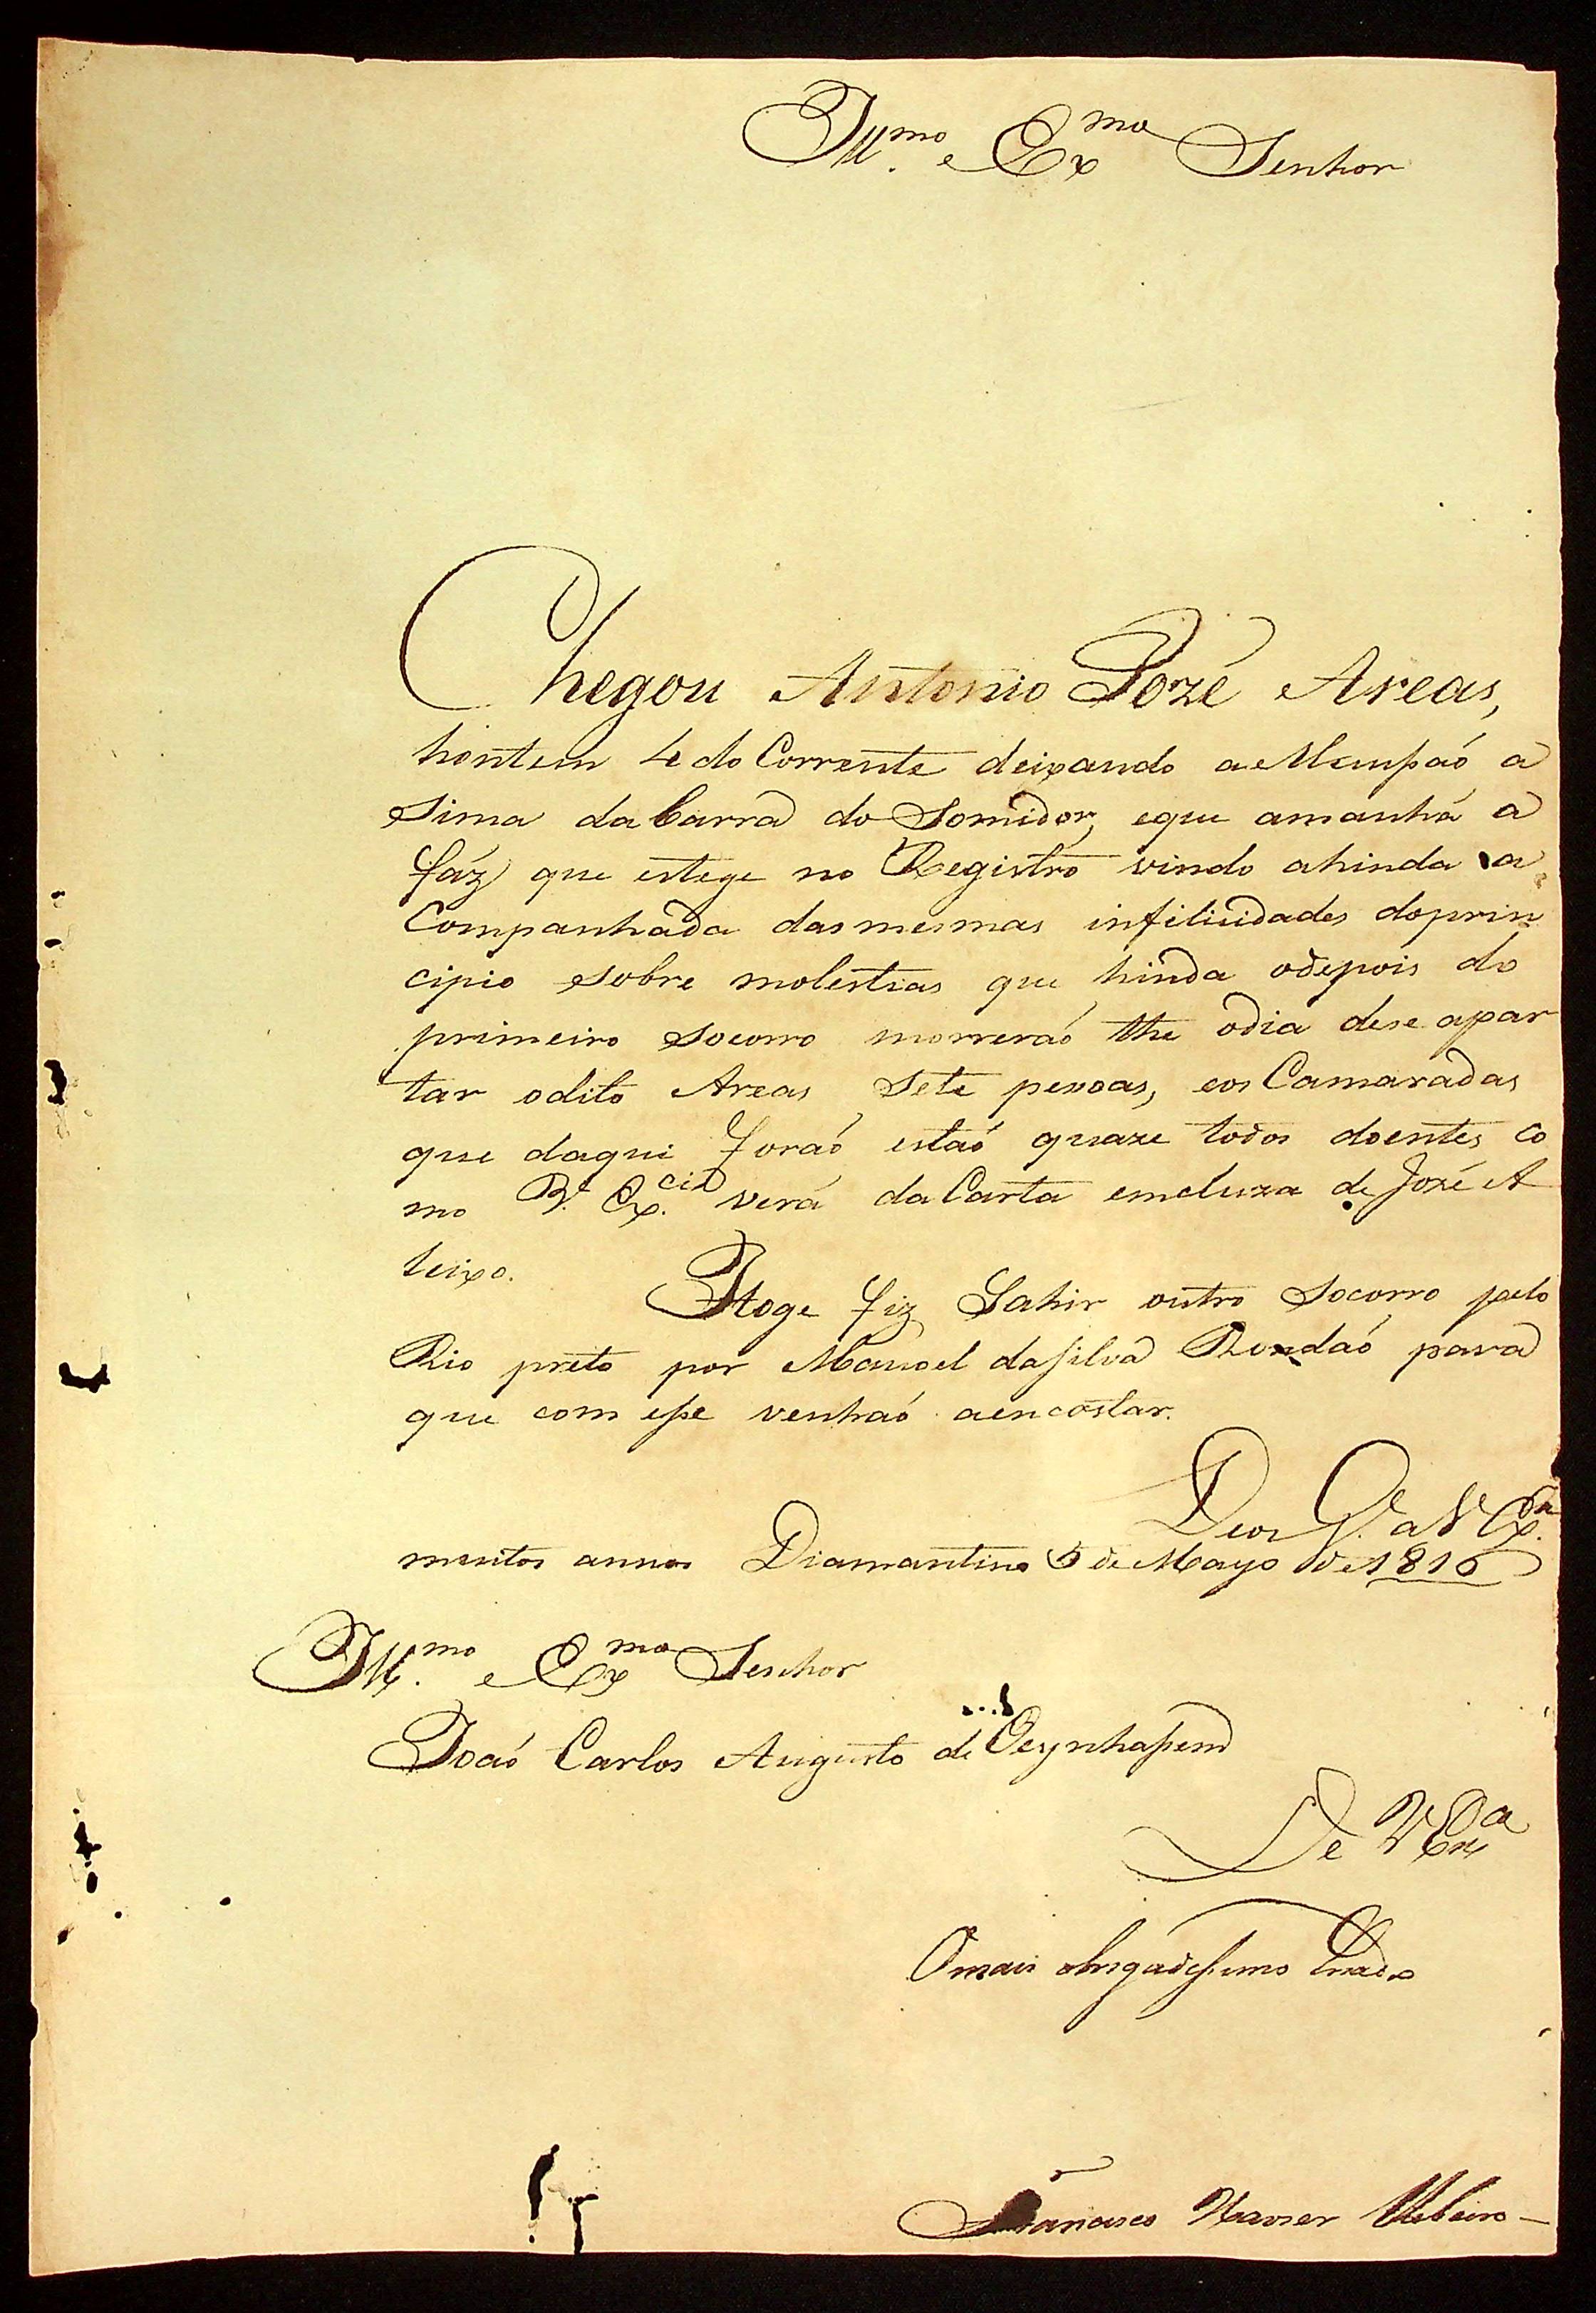 Ill.mo e Ex.mo Senhor
Chegou Antonio Jozé Areas,
hontem 4 do Corrente deixando a Monsaó a
sima da barra do Somidor, eque amanhá a
fáz que estege no Registro vindo ahinda a
Companhada dasmesmas infilicidades doprin
cipio sobre molestias que hinda odepois do
primeiro socorro morreraó the odia dese apar
tar odito Areas sete pesoas, eos Camaradas
que daqui foraó estaó quaze todos doentes co
mo V. Ex.cia verá da Carta emcluza de Jozé A
leixo.
Hoge fiz Sahir outro socorro pelo
Rio preto por Manoel dasilva Rondaó para
que com esse venhaó aencostar.
Deos G.e a V Ex.a
muitos annos Diamantino 5 de Mayo de 1816
Ill.mo e Ex.mo Senhor
Joaó Carlos Augusto de Oeynhasem
De V Ex.a
Omais obrigadissimo Criado
Francisco Xavier Ribeiro